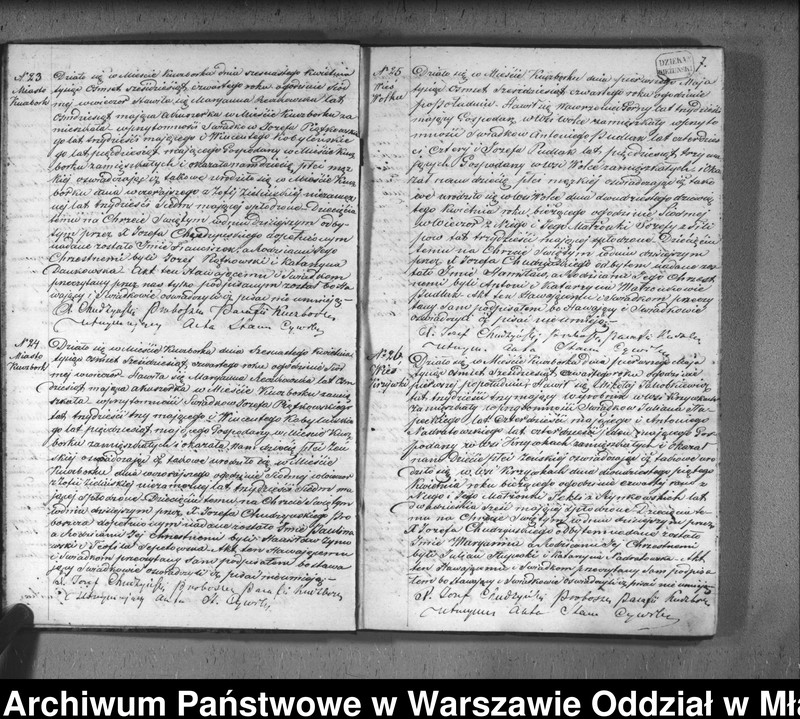 N° 23
Miasto
Kuczbork
Działo się w Mieście Kuczborku dnia szesnastego Kwietnia
tysiąc ośmset sześćdziesiąt czwartego roku o godzinie siód
mej wieczór Stawiła się Maryanna lat
ośmdziesiąt mająca Akuszerka w Mieście Kuczborku za
mieszkała w przytomności Świadków Józefa Piątkowskie
go lat trzydzieści mającego i Wincentego
go lat pięćdziesiąt mającego Gospodarzy w Mieście Kucz
borku zamieszkałych i okazała nam dziecię płci męz
kiej oświadczając iż takowe urodziło się w Mieście Kucz
borku dnia wczorajszego z Zofii Zielińskiej niezamęż
nej lat trzydzieści siedm mającej spłodzone Dziecięciu
temu na Chrzcie Świętym odbytym w dniu dzisiejszym odby
tym przez X Józefa Chudzyńskiego
nadane zostało Imie Franciszek a Rodzicami Jego
Chrzestnemi byli Józef Piątkowski i Katarzyna
Akt ten Stawającemu i Świadkom
przeczytany przez nas tylko podpisanym został bo Sta
wający i Świadkowie oświadczyli iż pisać nie umieją
X. Chudzyński Proboszcz Parafii Kuczbork
Utrzymujący Akta Stanu Cywilne
N° 24
Miasto
Kuczbork
Działo się w Mieście Kuczborku dnia szesnastego Kwietnia
tysiąc ośmset sześćdziesiąt czwartego roku o godzinie siód
mej wieczór Stawiła się Maryanna lat ośm
dziesiąt mająca Akuszerka w Mieście Kuczborku zamie
szkała w przytomności Świadków Józefa Piątkowskiego
lat trzydzieści trzy mającego i Wincentego
go lat pięćdziesiąt mającego Gospodarzy w Mieście Kucz
borku zamieszkałych i okazała nam dziecię płci żeń
skiej oświadczając iż takowe urodziło się w Mieście
Kuczborku dnia wczorajszego o godzinie siódmej wieczór
z Zofii Zielińskiej niezamężnej lat trzydzieści siedm ma
jącej spłodzone Dziecięciu temu na Chrzcie Świętym
w dniu dzisiejszym przez X. Józefa Chudzyńskiego Pro
boszcza dopełnionym nadane zostało Imie Paulina
a Rodzicami Jej Chrzestnemi byli Stanisław
i Teofila Akt ten Stawającemu
i Świadkom przeczytany Sam podpisałem bo Stawa
jący i Świadkowie oświadczyli iż pisać nie umieją
X. Józef Chudzyński Proboszcz Parafii Kuczbork
Utrzymujący Akta St. Cywilne
7.
N° 25
Wieś
Wólka
Działo się w Mieście Kuczborku dnia pierwszego Maja
tysiąc ośmset sześćdziesiąt czwartego roku o godzinie
po południu Stawił się Wawrzeniec lat trzydzieści
mający Gospodarz w Wsi Wólce zamieszkały w przyto
mności Świadków Antoniego Pudlak lat czterdzie
ści cztery i Józefa Pudlak lat pięćdziesiąt trzy ma
jących Gospodarzy w Wsi Wólce zamieszkałych i Oka
zał nam dziecię płci męzkiej oświadczając iż tako
we urodziło się w Wsi Wólce dnia dwudziestego dziewią
tego Kwietnia roku bieżącego o godzinie siódmej
wieczór z Niego i Jego Małżonki Józefy z Fili
pów lat trzydzieści mającej spłodzone Dziecięciu
temu na Chrzcie Świętym w dniu dzisiejszym
przez X Józefa Chudzyńskiego odbytym nadane zo
stało Imie Stanisław, a Rodzicami Jego Chrzest
nemi byli Antoni i Katarzyna Małżonkowie
Pudlak Akt ten Stawającemu i Świadkom przeczy
tany Sam podpisałem bo Stawający i Świadkowie
oświadczyli iż pisać nie umieją
X. Józef Chudzyński Proboszcz Parafii Kuczbork
Utrzym. Stanu Cywilne
N° 26
Wieś
Działo się w Mieście Kuczborku dnia pierwszego Maja
tysiąc ośmset sześćdziesiąt czwartego roku o godzinie
pierwszej po południu Stawił się Mikołaj Jakubkiewicz
lat trzydzieści trzy mający wyrobnik w Wsi
zamieszkały w przytomności Świadków Juliana
lat czterdzieści mającego i Antoniego
lat czterdzieści mającego Gos
podarzy w Wsi zamieszkałych i Okazał
nam Dziecię płci żeńskiej oświadczając iż takowe uro
dziło się w Wsi dnia dwudziestego piątego
Kwietnia roku bieżącego o godzinie czwartej rano z
Niego i Jego Małżonki Tekli z lat
mającej spłodzone Dziecięciu te
mu na Chrzcie Świętym w dniu dzisiejszym przez
X Józefa Chudzyńskiego odbytym nadane zostało
Imie Maryanna a Rodzicami Jej Chrzestnemi
byli Julian i Katarzyna Akt
ten Stawającemu i Świadkom przeczytany Sam podpisa
łem bo Stawający i Świadkowie oświadczyli iż pisać nie umieją
X. Józef Chudzyński Proboszcz Parafii Kuczbork
Utrzymu Akta Stanu Cywilne
Archiwum Państwowe w Warszawie Oddział w Mła